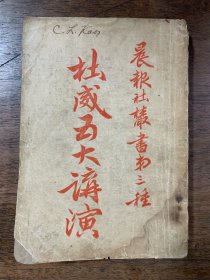 C. L. Kao
晨報社叢書第三種
杜威五大講演